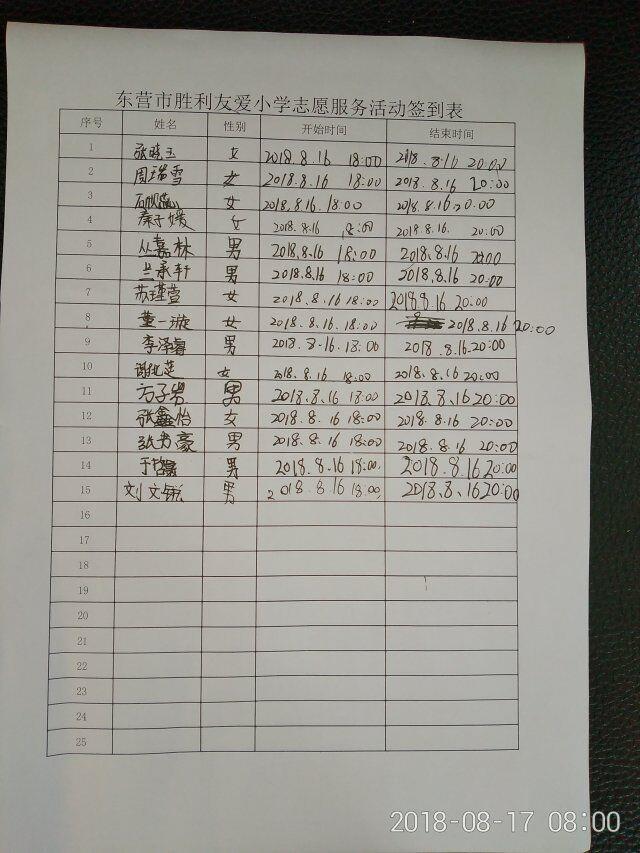 东营市胜利友爱小学志愿服务活动签到表
序号 姓名 性别 开始时间 结束时间
1 张晓玉 女 2018.8.16 18:00 2018.8.16 20:00
2 周瑞雪 女 2018.8.16 18:00 2018.8.16 20:00
3 女 2018.8.16 18:00 2018.8.16 20:00
4 秦子媛 女 2018.8.16 18:00 2018.8.16 20:00
5 丛嘉林 男 2018.8.16 18:00 2018.8.16 20:00
6 兰承轩 男 2018.8.16 18:00 2018.8.16 20:00
7 苏瑾萱 女 2018.8.16 18:00 2018.8.16 20:00
8 董一漩 女 2018.8.16 18:00 2018.8.16 20:00
9 李泽睿 男 2018.8.16 18:00 2018.8.16 20:00
10 女 2018.8.16 18:00 2018.8.16 20:00
11 方子岩 男 2018.8.16 18:00 2018.8.16 20:00
12 张鑫怡 女 2018.8.16 18:00 2018.8.16 20:00
13 张书豪 男 2018.8.16 18:00 2018.8.16 20:00
14 男 2018.8.16 18:00 2018.8.16 20:00
15 刘文 男 2018.8.16 18:00 2018.8.16 20:00
16
17
18
19
20
21
22
23
24
25
2018-08-17 08:00